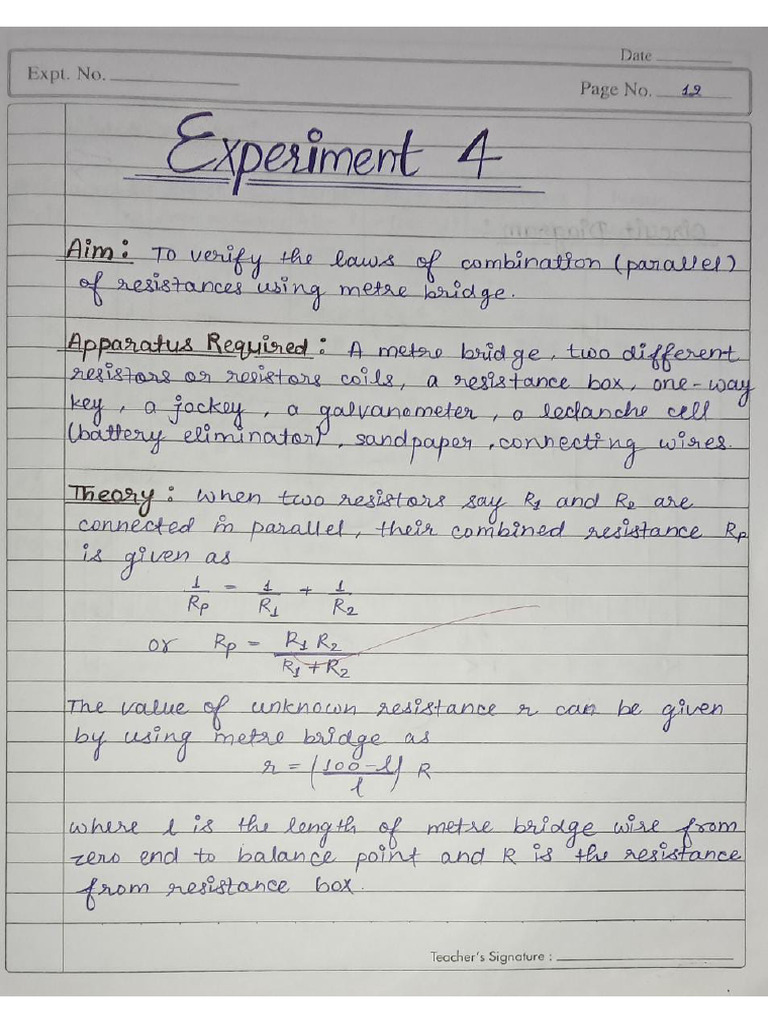 Date
Expt. No.
Page No. 12
Experiment 4
Aim: To verify the laws of combination (parallel)
of resistances using metre bridge.
Apparatus Required: A metre bridge, two different
resistors or resistors coils, a resistance box, one-way
key, a jockey, a galvanometer, a leclanche cell
(battery eliminator), sandpaper, connecting wires.
Theory: When two resistors say R1 and R2 are
connected in parallel, their combined resistance Rp
is given as
1/Rp = 1/R1 + 1/R2
or Rp = R1 R2 / R1 + R2
The value of unknown resistance r can be given
by using metre bridge as
r = (100-l / l) R
where l is the length of metre bridge wire from
zero end to balance point and R is the resistance
from resistance box.
Teacher's Signature :